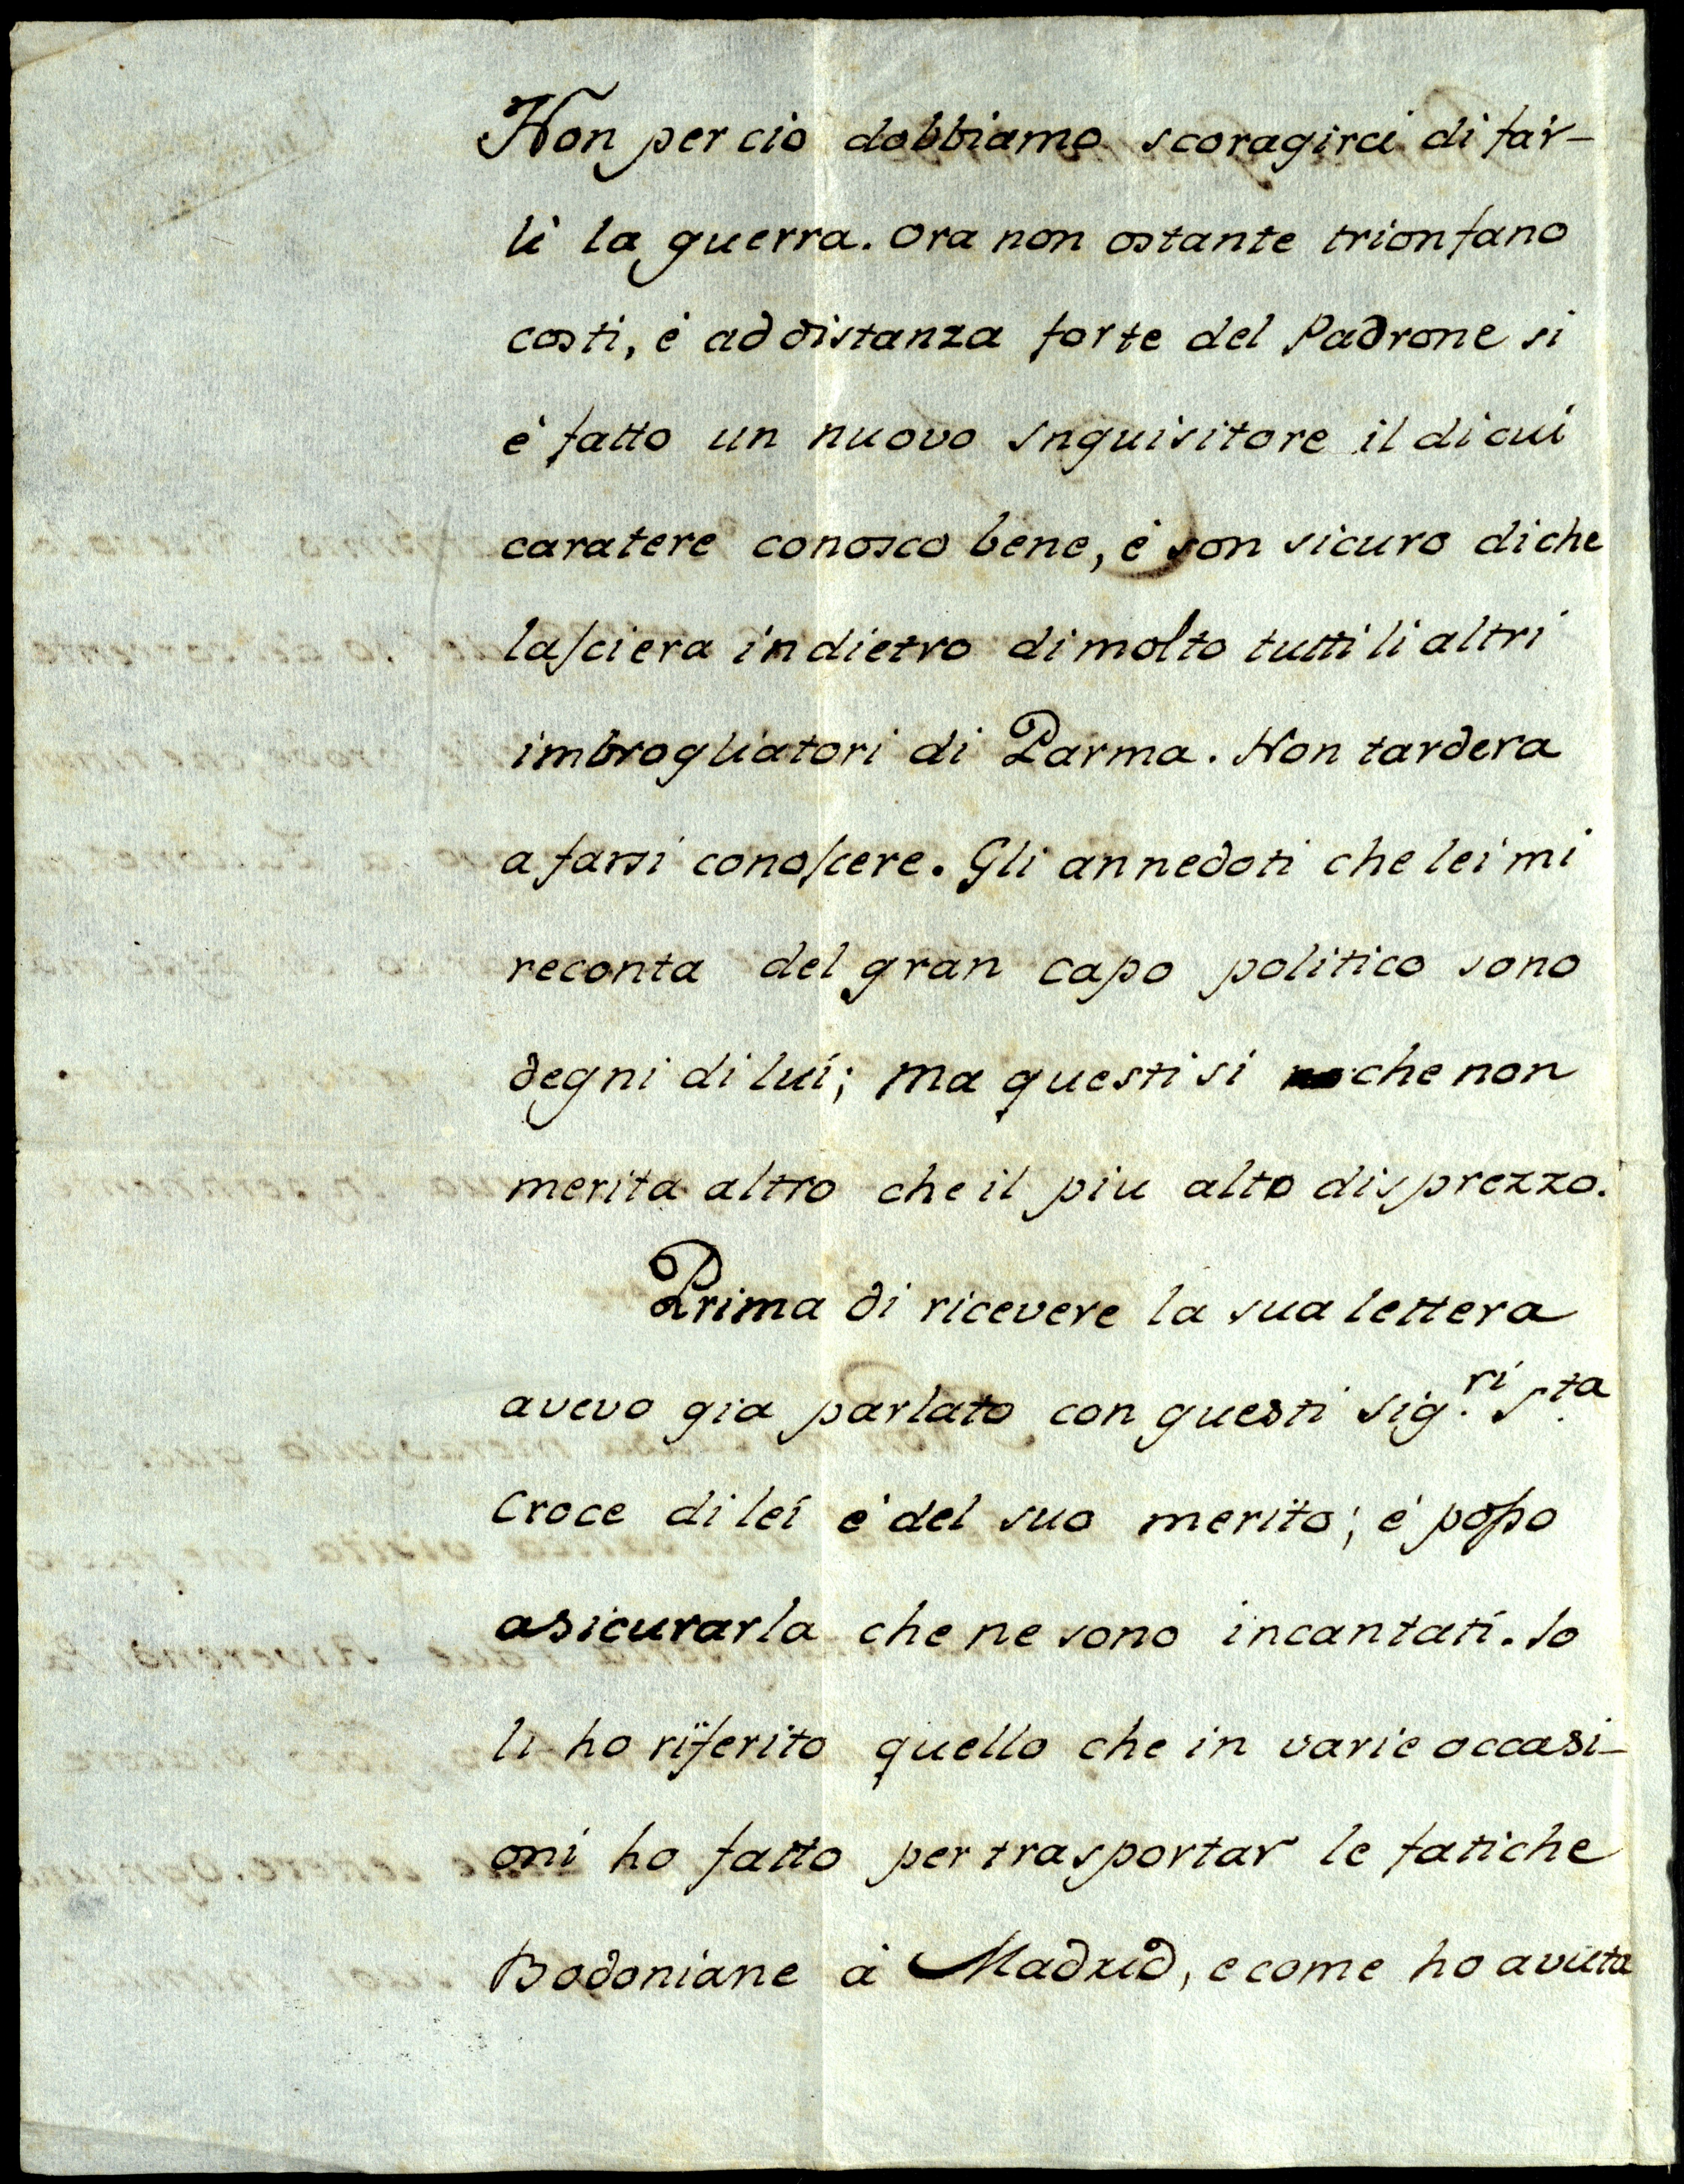 Non per ciò dobbiamo scoragirci di far-
li la guerra. Ora non ostante trionfano
costi, é ad distanza forte del Padrone si
é fatto un nuovo Inquisitore il di cui
caratere conosco bene, é son sicuro di che
lasciera indietro di molto tutti li altri
imbrogliatori di Parma. Non tardera
a farsi conoscere. Gli annedoti che lei mi
reconta del gran capo politico sono
degni di lui; ma questi si che non
merita altro che il piu alto disprezzo.
Prima di ricevere la sua lettera
avevo gia parlato con questi Sig.ri S.ta
Croce di lei é del suo merito; é posso
asicurarla che ne sono incantati. Io
li ho riferito quello che in varie occasi-
oni ho fatto per trasportar le fatiche
Bodoniane à Madrid, e come ho avuta